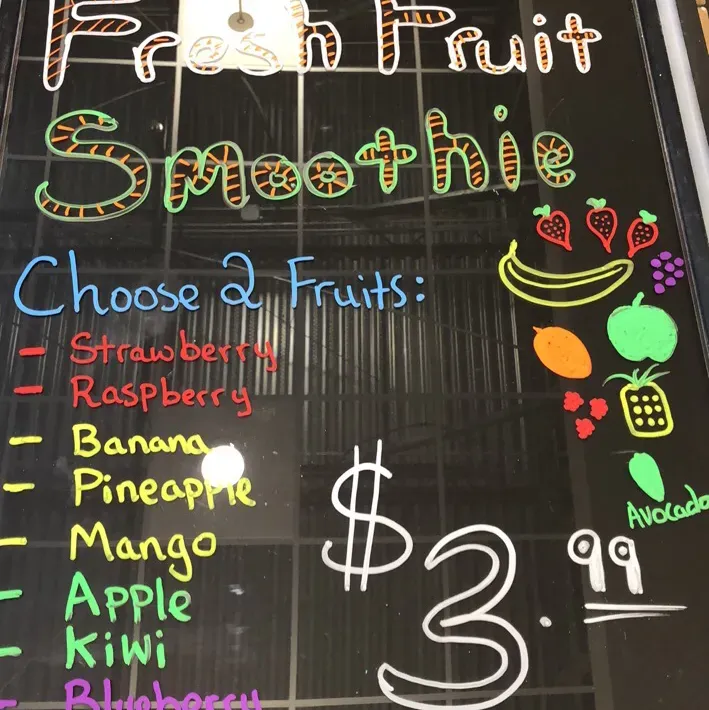 Fresh Fruit
Smoothie
Choose 2 Fruits:
- Strawberry
- Raspberry
- Banana
- Pineapple
- Mango
- Apple
- Kiwi
- Blueberry
Avocado
$3.99